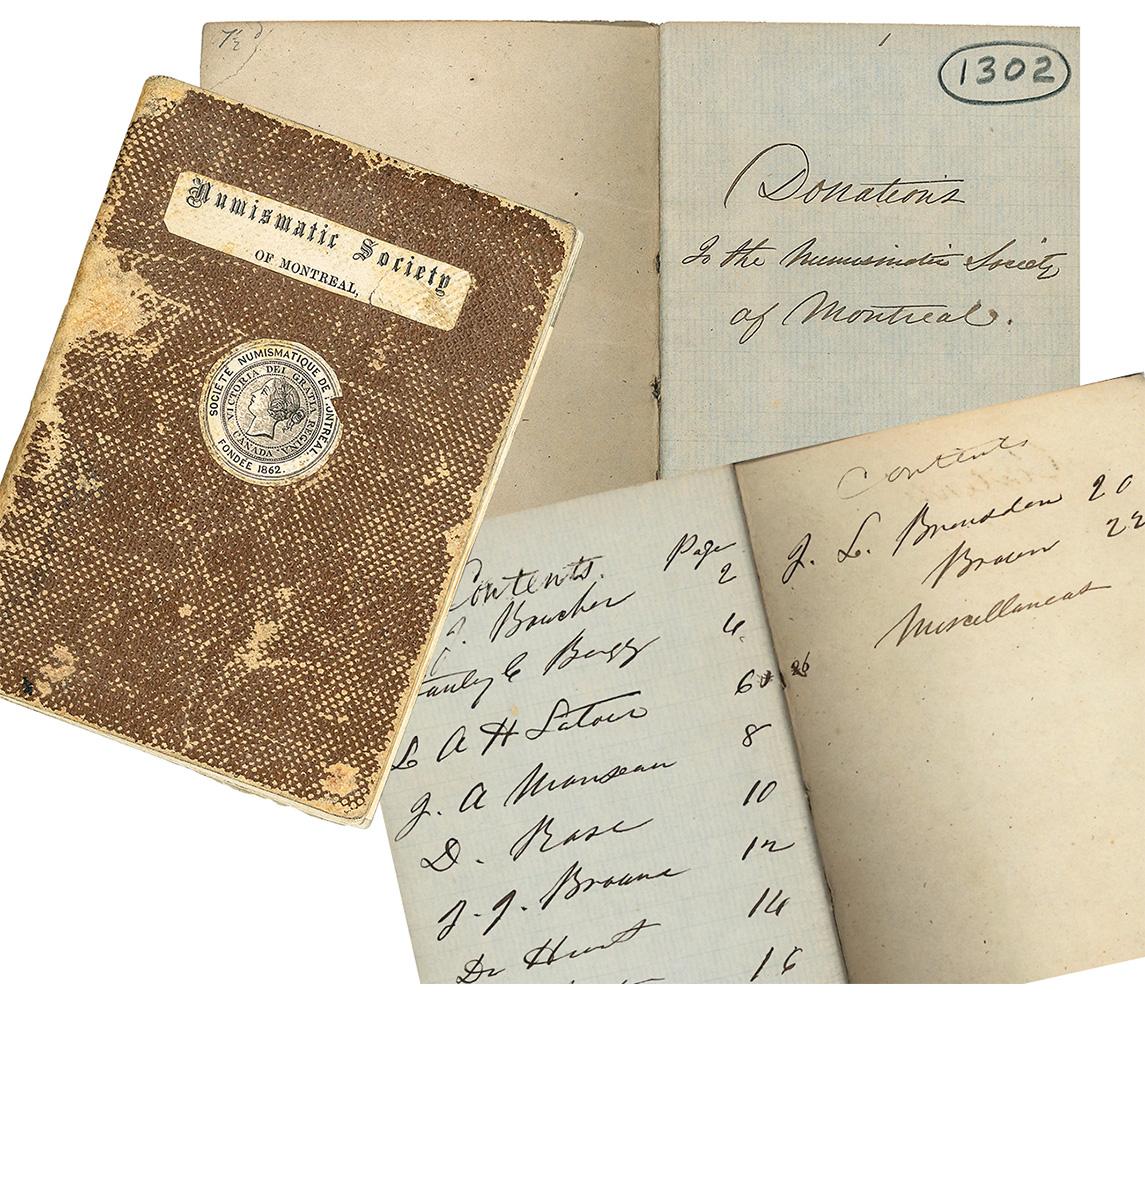 Numismatic Society
OF MONTREAL,
SOCIÉTÉ NUMISMATIQUE DE MONTREAL,
FONDÉE 1862.
VICTORIA DEI GRATIA REGINA
CANADA
7½
1
1302
Donations
To the Numismatic Society
of Montreal.
Contents. Page
J. Boucher 2
Stanley C Bagg 4
L A H Latour 6
J. A Manseau 8
D. Rose 10
J. J. Browne 12
Dr Hunt 14
16
Contents
J. L. Bronsdon 20
Brown 22
Miscellaneous
26